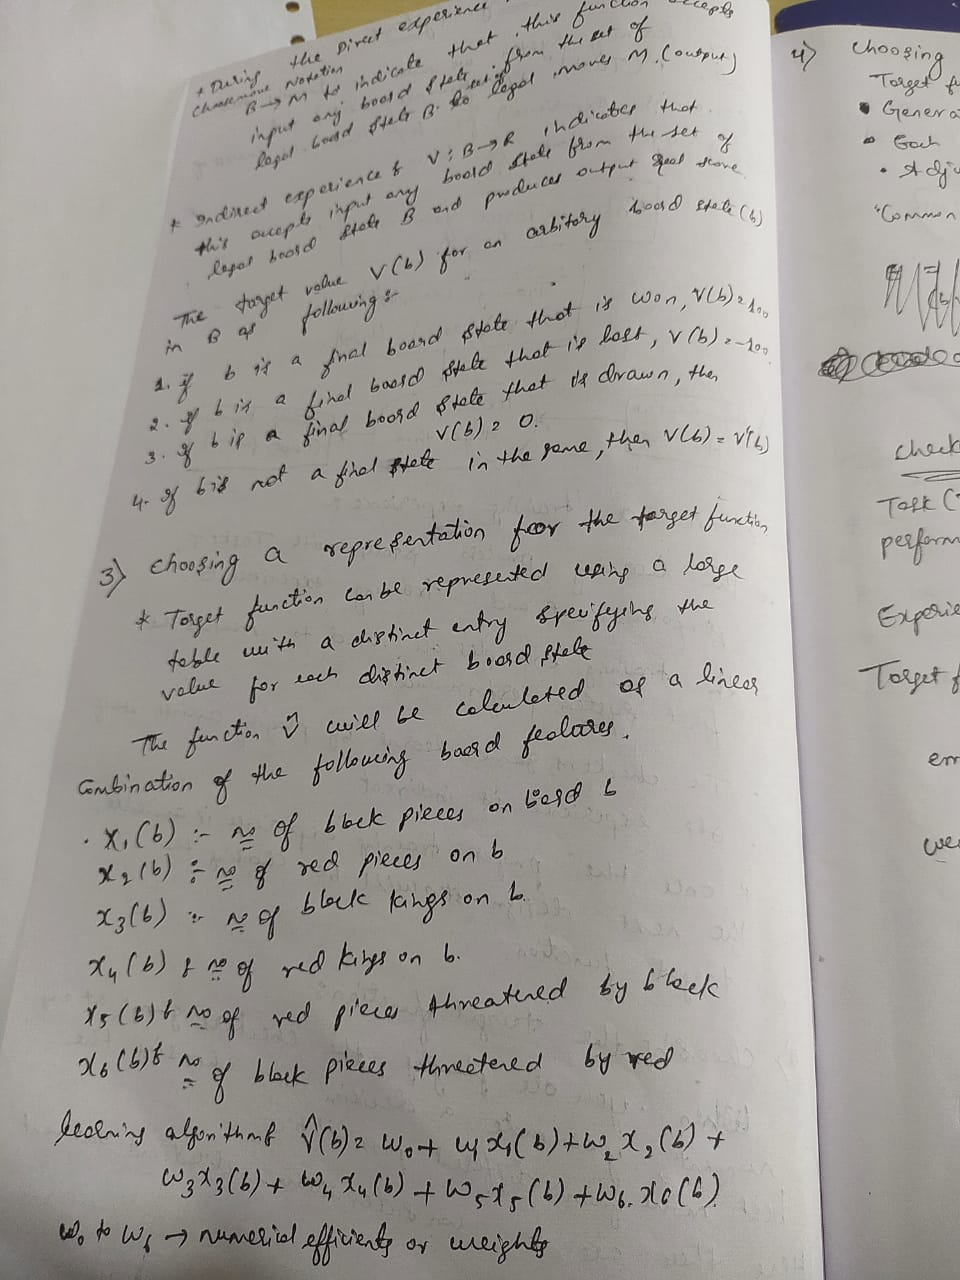 * During the Direct experience
choosemove Notation
B → M to indicate that this function accepts
input any board state from the set of
legal board state B to set of legal moves M. (output)
* Indirect experience : V : B → R indicates that
this accepts input any board state from the set of
legal board state B and produces output real score
The target value V(b) for an arbitory board state (b)
in B as following :-
1. if b is a final board state that is won, V(b) = 100
2. if b is a final board state that is lost, V(b) = -100
3. if b is a final board state that is drawn, then
V(b) = 0.
4. if b is not a final state in the game, then V(b) = V'(b)
3) Choosing a representation for the target function
* Target function can be represented using a large
table with a distinct entry specifying the
value for each distinct board state
The function V̂ will be calculated as a linear
Combination of the following board features.
. x₁(b) :- no of black pieces on board b
x₂(b) :- no of red pieces on b
x₃(b) :- no of black kings on b.
x₄(b) : no of red kings on b.
x₅(b) : no of red pieces threatered by black
x₆(b) : no of black pieces threetered by red
learning algorithm : V̂(b) = w₀ + w₁x₁(b) + w₂x₂(b) +
w₃x₃(b) + w₄x₄(b) + w₅x₅(b) + w₆.x₆(b).
w₀ to w₆ → numerical efficients or weights
4) Choosing
Target fu
• Genera
• Each
• Adju
"Common
check
Task (T
perform
Experie
Target f
em
we